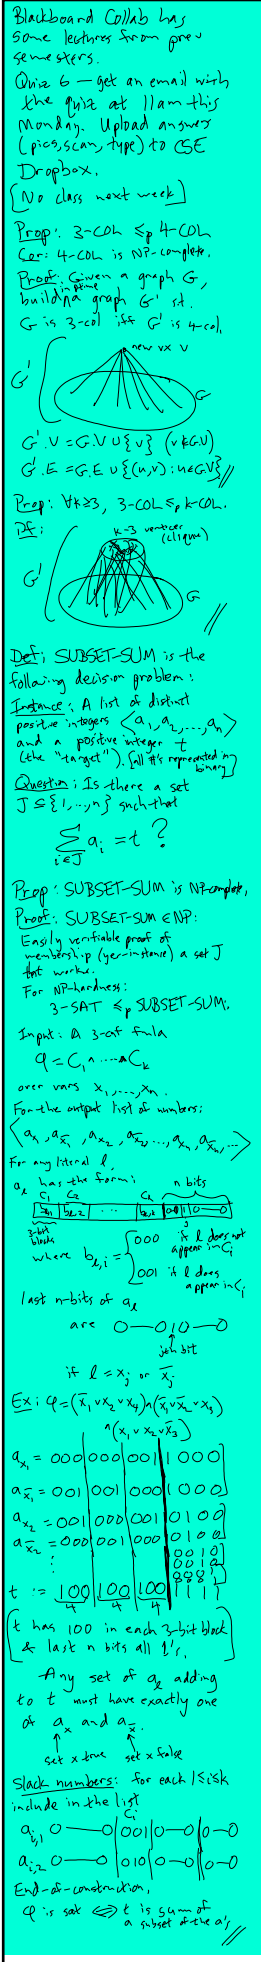 Blackboard Collab has
some lectures from prev
semesters.
Quiz 6 — get an email with
the quiz at 11am this
Monday. Upload answer
(pics, scan, type) to CSE
Dropbox.
[No class next week]
Prop: 3-COL ≤p 4-COL
Cor: 4-COL is NP-complete.
Proof: Given a graph G,
build in ptime a graph G' st.
G is 3-col iff G' is 4-col.
new vx v
G'
G
G'.V = G.V ∪ {v} (v ∉ G.V)
G'.E = G.E ∪ {(u,v) : u ∈ G.V} //
Prop: ∀k≥3, 3-COL ≤p k-COL.
Pf:
k-3 vertices
(clique)
G'
G
//
Def: SUBSET-SUM is the
following decision problem:
Instance: A list of distinct
positive integers <a₁, a₂, ..., aₙ>
and a positive integer t
(the "target"). [all #'s represented in
binary]
Question: Is there a set
J ⊆ {1,..,n} such that
∑ aᵢ = t ?
i∈J
Prop: SUBSET-SUM is NP-complete.
Proof: SUBSET-SUM ∈ NP:
Easily verifiable proof of
membership (yes-instance) a set J
that works.
For NP-hardness:
3-SAT ≤p SUBSET-SUM:
Input: A 3-cnf fmla
φ = C₁ ∧ ... ∧ Cₖ
over vars x₁, ..., xₙ.
For the output list of numbers:
<a_x₁, a_x̄₁, a_x₂, a_x̄₂, ..., a_xₙ, a_x̄ₙ, ...>
For any literal ℓ,
a_ℓ has the form:
C₁ C₂ Cₖ n bits
b_ℓ,1 b_ℓ,2 ... b_ℓ,k 0 0 1 0—0
3-bit
blocks
j
where b_ℓ,i = { 000 if ℓ does not
appear in Cᵢ
001 if ℓ does
appear in Cᵢ
last n-bits of a_ℓ
are 0—010—0
jth bit
if ℓ = xⱼ or x̄ⱼ
Ex: φ = (x̄₁ ∨ x₂ ∨ x₄) ∧ (x̄₁ ∨ x̄₂ ∨ x₃)
∧ (x₁ ∨ x₂ ∨ x̄₃)
a_x₁ = 000 | 000 | 001 | 1000
a_x̄₁ = 001 | 001 | 000 | 1000
a_x₂ = 001 | 000 | 001 | 0100
a_x̄₂ = 000 | 001 | 000 | 0100
⋮
0010
0010
0001
0001
t := 100 | 100 | 100 | 1111
4 4 4
[t has 100 in each 3-bit block
& last n bits all 1's.]
Any set of a_ℓ adding
to t must have exactly one
of a_x and a_x̄.
set x true set x false
Slack numbers: for each 1≤i≤k
include in the list
Cᵢ
aᵢ,₁ 0—0 | 001 | 0—0 | 0—0
aᵢ,₂ 0—0 | 010 | 0—0 | 0—0
End-of-construction.
φ is sat ⟺ t is sum of
a subset of the a's
//